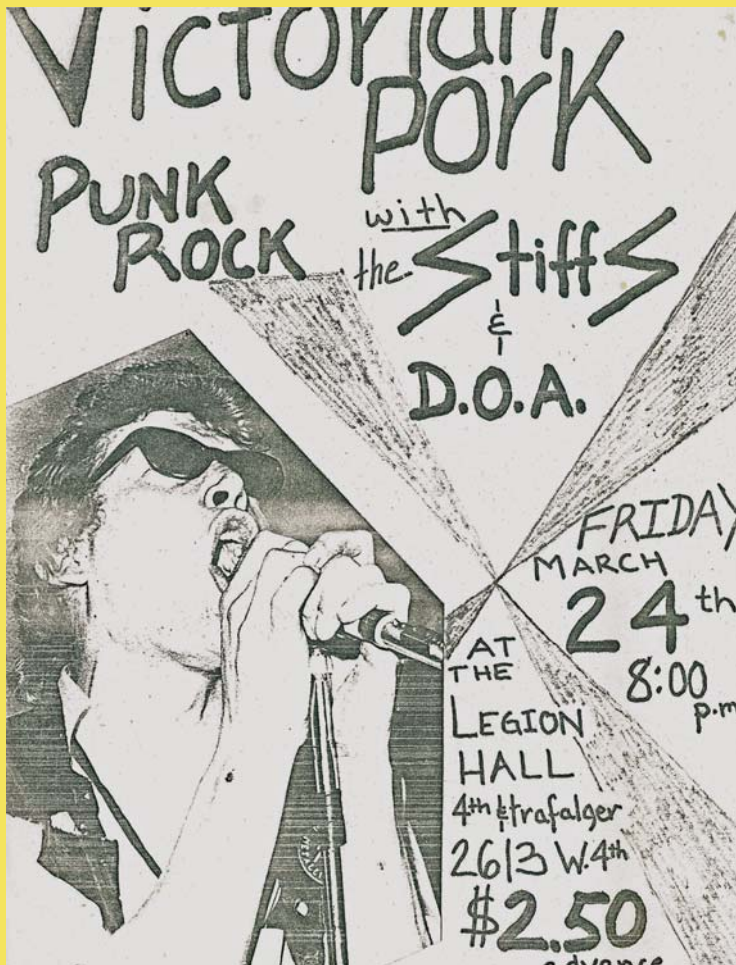 Victorian
pork
PUNK
ROCK
with
the Stiffs
&
D.O.A.
FRIDAY
MARCH
24th
8:00
p.m
AT
THE
LEGION
HALL
4th & trafalger
2613 W.4th
$2.50
advance